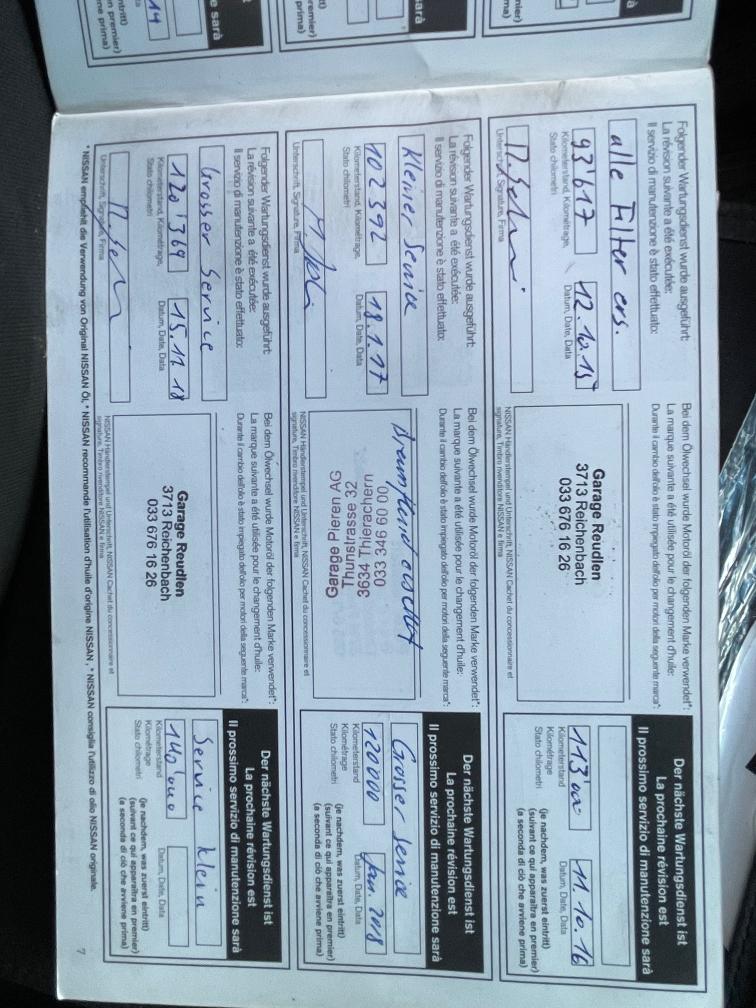 Folgender Wartungsdienst wurde ausgeführt:
La révision suivante a été exécutée:
Il servizio di manutenzione è stato effettuato:
alle Filter ers.
93'617
12.10.15
Kilometerstand, Kilométrage,
Stato chilometri
Datum, Date, Data
Unterschrift, Signature, Firma
Bei dem Ölwechsel wurde Motoröl der folgenden Marke verwendet*:
La marque suivante a été utilisée pour le changement d'huile:
Durante il cambio dell'olio è stato impiegato dell'olio per motori della seguente marca*:
Garage Reudlen
3713 Reichenbach
033 676 16 26
NISSAN Händlerstempel und Unterschrift, NISSAN Cachet du concessionnaire et
signature, Timbro rivenditore NISSAN e firma
Der nächste Wartungsdienst ist
La prochaine révision est
Il prossimo servizio di manutenzione sarà
11.10.16
Kilometerstand
Kilométrage
Stato chilometri
Datum, Date, Data
(je nachdem, was zuerst eintritt)
(suivant ce qui apparaîtra en premier)
(a seconda di ciò che avviene prima)
Folgender Wartungsdienst wurde ausgeführt:
La révision suivante a été exécutée:
Il servizio di manutenzione è stato effettuato:
Kleiner Service
102 392
18.1.17
Kilometerstand, Kilométrage,
Stato chilometri
Datum, Date, Data
Unterschrift, Signature, Firma
Bei dem Ölwechsel wurde Motoröl der folgenden Marke verwendet*:
La marque suivante a été utilisée pour le changement d'huile:
Durante il cambio dell'olio è stato impiegato dell'olio per motori della seguente marca*:
Garage Pieren AG
Thunstrasse 32
3634 Thierachern
033 345 60 00
NISSAN Händlerstempel und Unterschrift, NISSAN Cachet du concessionnaire et
signature, Timbro rivenditore NISSAN e firma
Der nächste Wartungsdienst ist
La prochaine révision est
Il prossimo servizio di manutenzione sarà
Grosser Service
120000
Jan. 2018
Kilometerstand
Kilométrage
Stato chilometri
Datum, Date, Data
(je nachdem, was zuerst eintritt)
(suivant ce qui apparaîtra en premier)
(a seconda di ciò che avviene prima)
Folgender Wartungsdienst wurde ausgeführt:
La révision suivante a été exécutée:
Il servizio di manutenzione è stato effettuato:
Grosser Service
120'369
15.11.18
Kilometerstand, Kilométrage,
Stato chilometri
Datum, Date, Data
Unterschrift, Signature, Firma
Bei dem Ölwechsel wurde Motoröl der folgenden Marke verwendet*:
La marque suivante a été utilisée pour le changement d'huile:
Durante il cambio dell'olio è stato impiegato dell'olio per motori della seguente marca*:
Garage Reudlen
3713 Reichenbach
033 676 16 26
NISSAN Händlerstempel und Unterschrift, NISSAN Cachet du concessionnaire et
signature, Timbro rivenditore NISSAN e firma
Der nächste Wartungsdienst ist
La prochaine révision est
Il prossimo servizio di manutenzione sarà
Service klein
140'000
Kilometerstand
Kilométrage
Stato chilometri
Datum, Date, Data
(je nachdem, was zuerst eintritt)
(suivant ce qui apparaîtra en premier)
(a seconda di ciò che avviene prima)
* NISSAN empfiehlt die Verwendung von Original NISSAN Öl, * NISSAN recommande l'utilisation d'huile d'origine NISSAN, * NISSAN consiglia l'utilizzo di olio NISSAN originale.
7